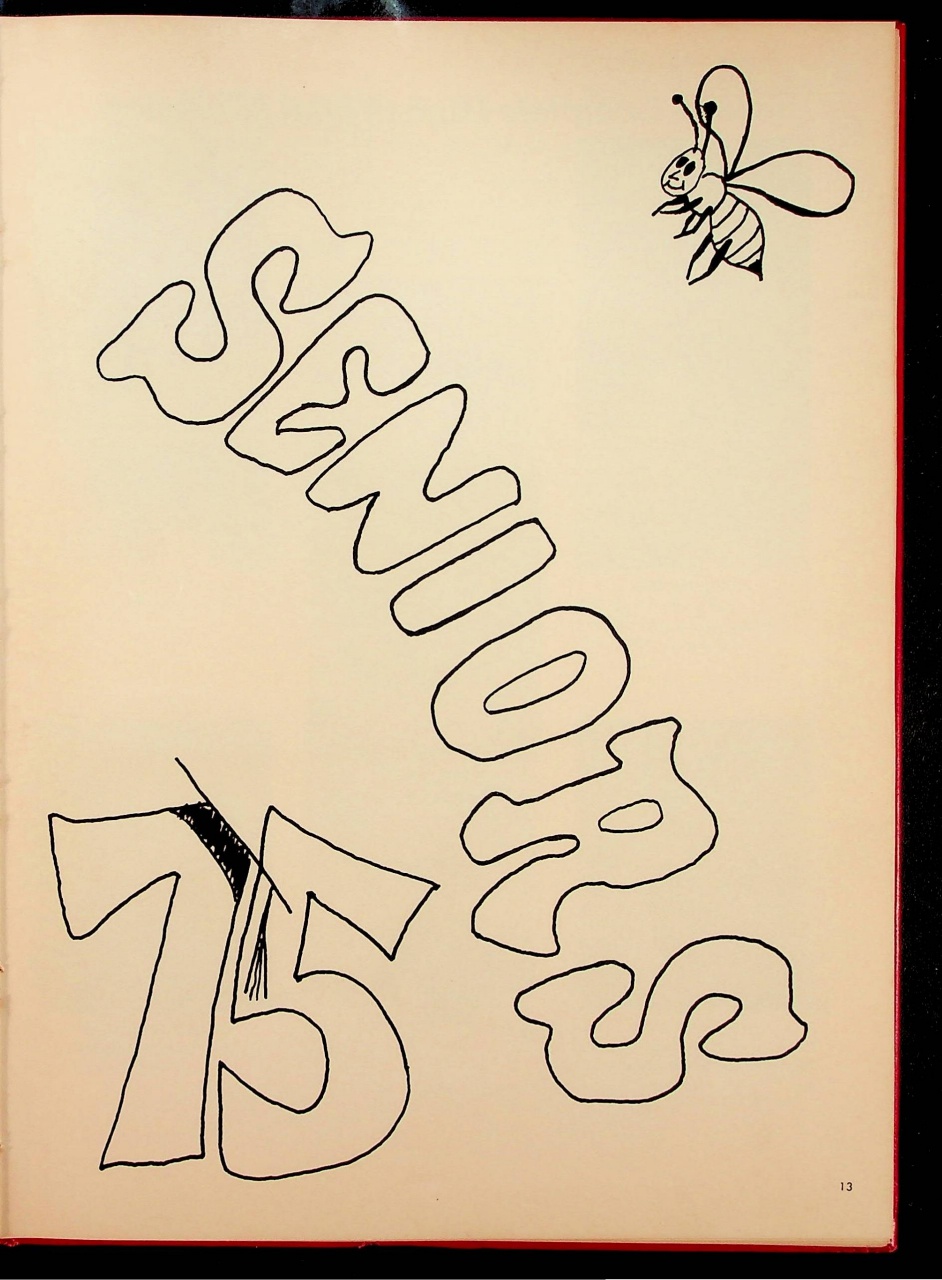 SENIORS
75
13